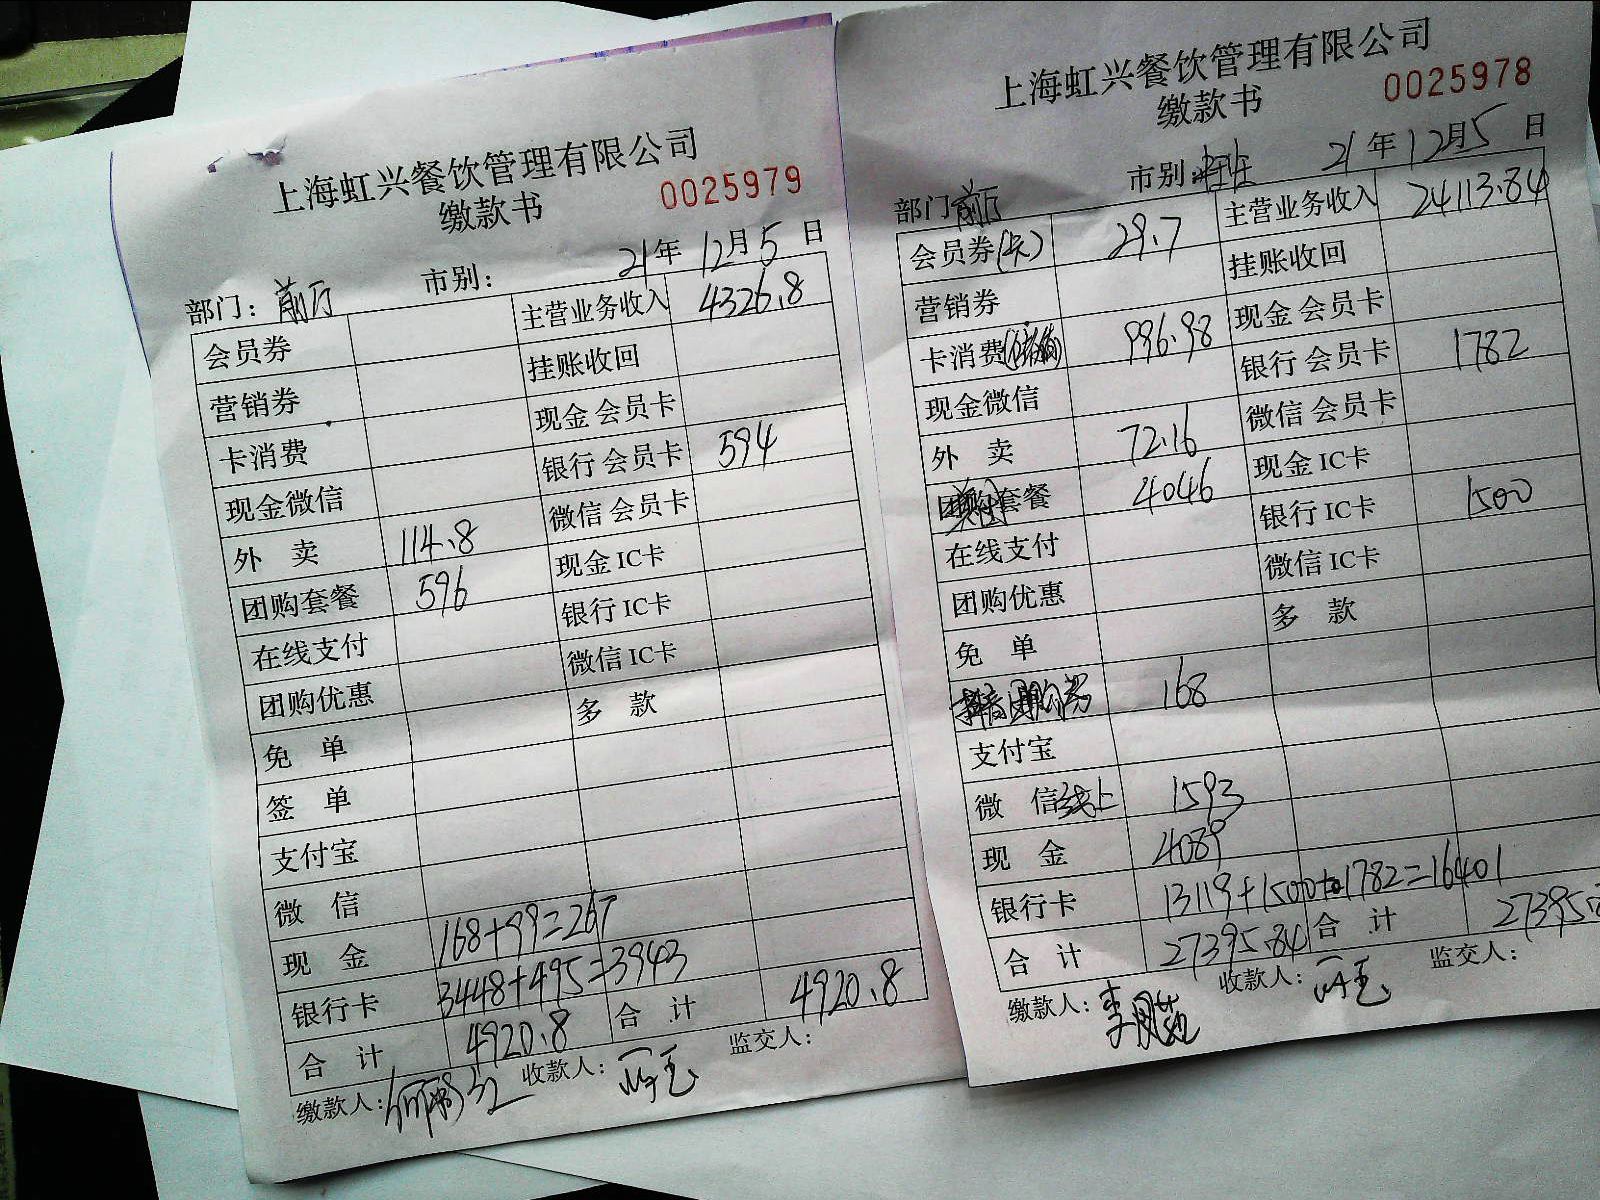 上海虹兴餐饮管理有限公司
缴款书
0025979
21年 12月 5 日
部门：前厅 市别：
会员券 主营业务收入 4326.8
营销券 挂账收回
卡消费 现金 会员卡
现金微信 银行 会员卡 594
外 卖 114.8 微信 会员卡
团购套餐 596 现金 IC卡
在线支付 银行 IC卡
团购优惠 微信 IC卡
免 单 多 款
签 单
支付宝
微 信
现 金 168+99=267
银行卡 3448+495=3943
合 计 4920.8 合 计 4920.8
缴款人： 收款人： 监交人：
上海虹兴餐饮管理有限公司
缴款书
0025978
部门 前厅 市别： 21年12月5日
会员券(卡) 29.7 主营业务收入 24113.84
营销券 挂账收回
卡消费 996.98 现金 会员卡
现金微信 银行 会员卡 1782
外 卖 72.16 微信 会员卡
团购套餐 4046 现金 IC卡
在线支付 银行 IC卡 1500
团购优惠 微信 IC卡
免 单 多 款
168
支付宝
微 信 线上 1593
现 金 4089
银行卡 13119+1500+1782=16401
合 计 27395.84 合 计 27395.
缴款人： 收款人： 监交人：